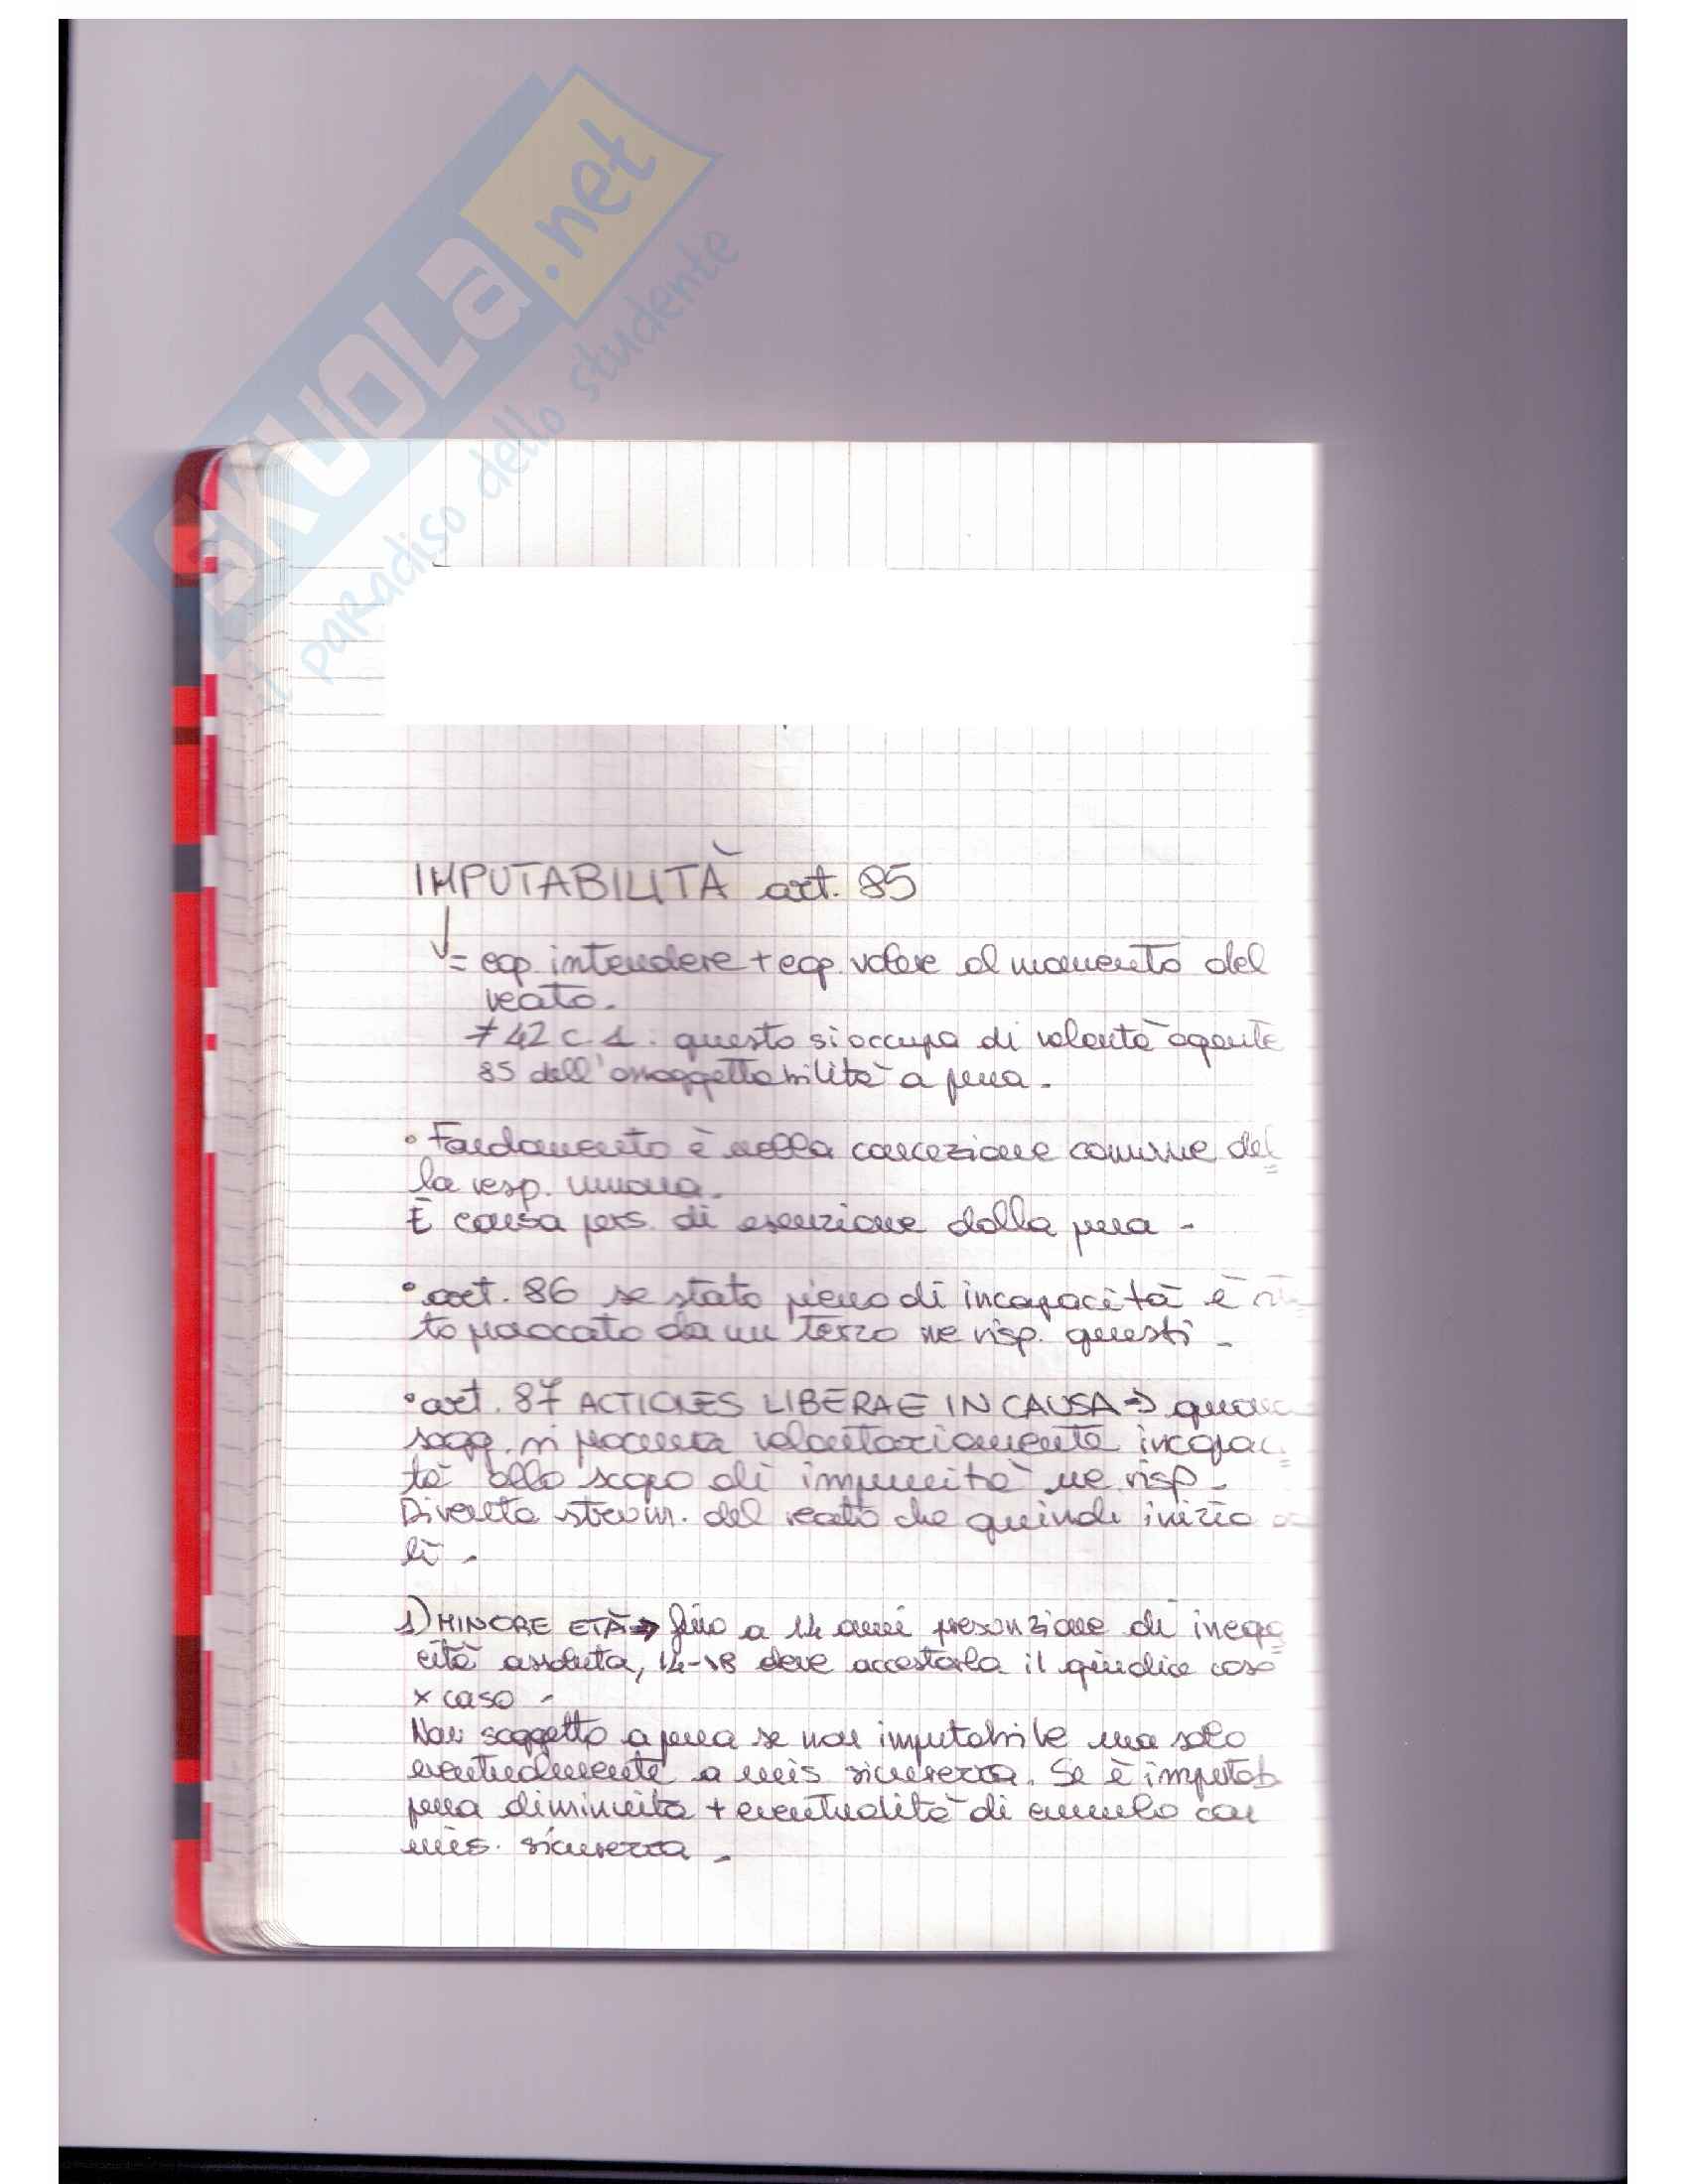 SKUOLA.net
il paradiso dello studente
IMPUTABILITÀ art. 85
= cap. intendere + cap. volere al momento del
reato.
≠ 42 c. 1 : questo si occupa di volontà agente
85 dell'assoggettabilità a pena.
• Fondamento è nella concezione comune del
la resp. umana.
È causa pers. di esenzione dalla pena -
• art. 86 se stato pieno di incapacità è
to provocato da un terzo ne risp. questi -
• art. 87 ACTIONES LIBERAE IN CAUSA →
sogg. si procura volontariamente incapaci
tà allo scopo di impunità ne risp -
Diventa strum. del reato che quindi inizia
lì -
1) MINORE ETÀ → fino a 14 anni presunzione di incapa
cità assoluta, 14-18 deve accertarla il giudice caso
x caso -
Non soggetto a pena se non imputabile ma solo
eventualmente a mis sicurezza. Se è imputab
pena diminuita + eventualità di cumulo con
mis. sicurezza -